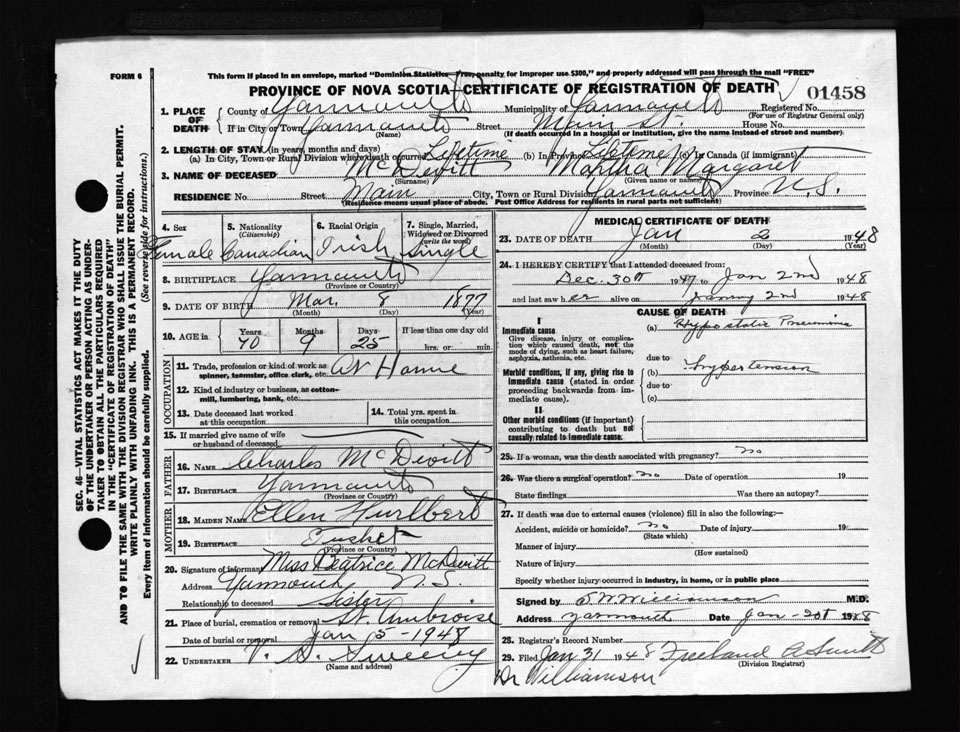 FORM 6
This form if placed in an envelope, marked "Dominion Statistics—Free, penalty for improper use $300," and properly addressed will pass through the mail "FREE"
PROVINCE OF NOVA SCOTIA—CERTIFICATE OF REGISTRATION OF DEATH
01458
1. PLACE OF DEATH
County of Yarmouth Municipality of Yarmouth Registered No.
(For use of Registrar General only)
If in City or Town Yarmouth Street Main St. House No.
(Name) (If death occurred in a hospital or institution, give the name instead of street and number)
2. LENGTH OF STAY (in years, months and days)
(a) In City, Town or Rural Division where death occurred Lifetime (b) in Province Lifetime (c) In Canada (if immigrant)
3. NAME OF DECEASED McDevitt Martha Margaret
(Surname) (Given name or names)
RESIDENCE No. Street Main City, Town or Rural Division Yarmouth Province N.S.
(Residence means usual place of abode. Post Office Address for residents in rural parts not sufficient)
4. Sex
Female
5. Nationality
(Citizenship)
Canadian
6. Racial Origin
Irish
7. Single, Married, Widowed or Divorced
(write the word)
Single
8. BIRTHPLACE Yarmouth
(Province or Country)
9. DATE OF BIRTH Mar. 8 1877
(Month) (Day) (Year)
10. AGE in Years Months Days If less than one day old
70 9 25 hrs. or min.
OCCUPATION
11. Trade, profession or kind of work as spinner, teamster, office clerk, etc. At Home
12. Kind of industry or business, as cotton-mill, lumbering, bank, etc.
13. Date deceased last worked at this occupation
14. Total yrs. spent in this occupation
15. If married give name of wife or husband of deceased
FATHER
16. NAME Charles McDevitt
17. BIRTHPLACE Yarmouth
(Province or Country)
MOTHER
18. MAIDEN NAME Ellen Hurlbert
19. BIRTHPLACE Tusket
(Province or Country)
20. Signature of informant Miss Beatrice McDevitt
Address Yarmouth N.S.
Relationship to deceased Sister
21. Place of burial, cremation or removal St. Ambroise
Date of burial or removal Jan 5 - 1948
22. UNDERTAKER V. S. Sweeny
(Name and address)
MEDICAL CERTIFICATE OF DEATH
23. DATE OF DEATH Jan 2 1948
(Month) (Day) (Year)
24. I HEREBY CERTIFY that I attended deceased from:
Dec. 30th 1947 to Jan 2nd 1948
and last saw her alive on 2nd 1948
CAUSE OF DEATH
I
Immediate cause
Give disease, injury or complication which caused death, not the mode of dying, such as heart failure, asphyxia, asthenia, etc.
(a) Hypostatic Pneumonia
due to
Morbid conditions, if any, giving rise to immediate cause (stated in order proceeding backwards from immediate cause).
(b) Hypertension
due to
(c)
II
Other morbid conditions (if important) contributing to death but not causally related to immediate cause.
25. If a woman, was the death associated with pregnancy? no
26. Was there a surgical operation? no Date of operation 19
State findings Was there an autopsy?
27. If death was due to external causes (violence) fill in also the following:—
Accident, suicide or homicide? no Date of injury 19
(State which)
Manner of injury
(How sustained)
Nature of injury
Specify whether injury occurred in industry, in home, or in public place
Signed by S W Williamson M.D.
Address Yarmouth Date 1948
28. Registrar's Record Number
29. Filed Jan 31 1948 Freeland A Smith
(Division Registrar)
Dr Williamson
SEC. 46—VITAL STATISTICS ACT MAKES IT THE DUTY
OF THE UNDERTAKER OR PERSON ACTING AS UNDER-
TAKER TO OBTAIN ALL THE PARTICULARS REQUIRED
IN THE "CERTIFICATE OF REGISTRATION OF DEATH"
AND TO FILE THE SAME WITH THE DIVISION REGISTRAR WHO SHALL ISSUE THE BURIAL PERMIT.
WRITE PLAINLY WITH UNFADING INK. THIS IS A PERMANENT RECORD.
Every item of information should be carefully supplied. (See reverse side for instructions.)